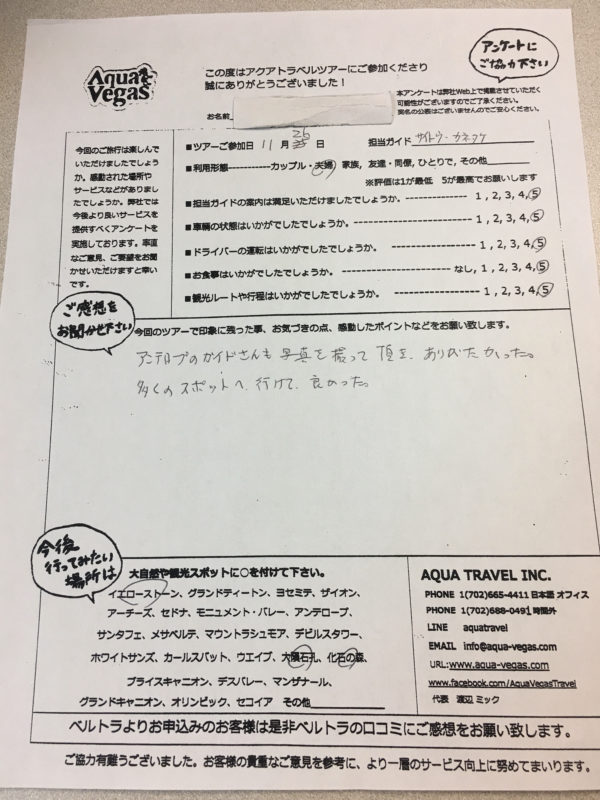 Aqua
Vegas
この度はアクアトラベルツアーにご参加くださり
誠にありがとうございました！
アンケートに
ご協力下さい
お名前
本アンケートは弊社Web上で掲載させていただく
可能性がございますのでご了承ください。
実名の公表はございませんのでご安心ください。
今回のご旅行は楽しんで
いただけましたでしょう
か。感動された場所や
サービスなどがありまし
たでしょうか。弊社では
今後より良いサービスを
提供すべくアンケートを
実施しております。率直
なご意見、ご要望をお聞
かせいただけますと幸い
です。
■ツアーご参加日 11月 26日 担当ガイド サイトウ・カネタケ
■利用形態------------カップル・夫婦, 家族, 友達・同僚, ひとりで, その他
※評価は1が最低 5が最高でお願いします
■担当ガイドの案内は満足いただけましたでしょうか。--------------- 1, 2, 3, 4, 5
■車輌の状態はいかがでしたでしょうか。 ------------------------- 1, 2, 3, 4, 5
■ドライバーの運転はいかがでしたでしょうか。 ------------------- 1, 2, 3, 4, 5
■お食事はいかがでしたでしょうか。 ----------------------- なし, 1, 2, 3, 4, 5
■観光ルートや行程はいかがでしたでしょうか。 ------------------- 1, 2, 3, 4, 5
ご感想を
お聞かせ下さい
今回のツアーで印象に残った事、お気づきの点、感動したポイントなどをお願い致します。
アンテロプのガイドさんも写真を撮って頂き、ありがたかった。
多くのスポットへ行けて、良かった。
今後
行ってみたい
場所は
大自然や観光スポットに○を付けて下さい。
イエローストーン、グランドティートン、ヨセミテ、ザイオン、
アーチーズ、セドナ、モニュメント・バレー、アンテロープ、
サンタフェ、メサベルテ、マウントラシュモア、デビルスタワー、
ホワイトサンズ、カールスバット、ウエイブ、大隕石孔、化石の森、
ブライスキャニオン、デスバレー、マンザナール、
グランドキャニオン、オリンピック、セコイア その他
AQUA TRAVEL INC.
PHONE 1(702)665-4411 日本語 オフィス
PHONE 1(702)688-0491 時間外
LINE aquatravel
EMAIL info@aqua-vegas.com
URL:www.aqua-vegas.com
www.facebook.com/AquaVegasTravel
代表 渡辺 ミック
ベルトラよりお申込みのお客様は是非ベルトラの口コミにご感想をお願い致します。
ご協力有難うございました。お客様の貴重なご意見を参考に、より一層のサービス向上に努めてまいります。